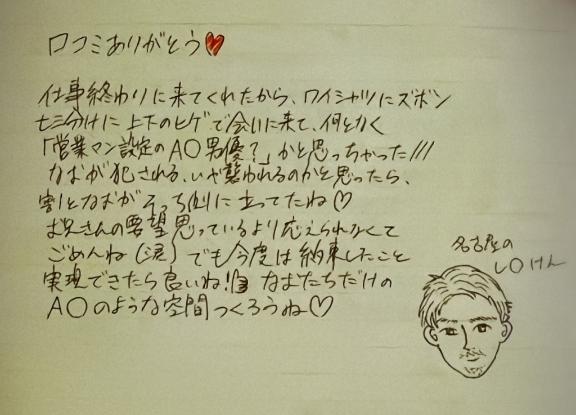 口コミありがとう♥
仕事終わりに来てくれたから、ワイシャツにズボン
七三分けに上下のヒゲで会いに来て、何となく
「営業マン設定のA○男優？」かと思っちゃった///
なおが犯される、いや襲われるのかと思ったら、
割となおがそっち側に立ってたね♡
お兄さんの要望思っているより応えられなくて
ごめんね（涙）でも今度は約束したこと
実現できたら良いね！なおたちだけの
A○のような空間つくろうね♡
名古屋の
し○けん